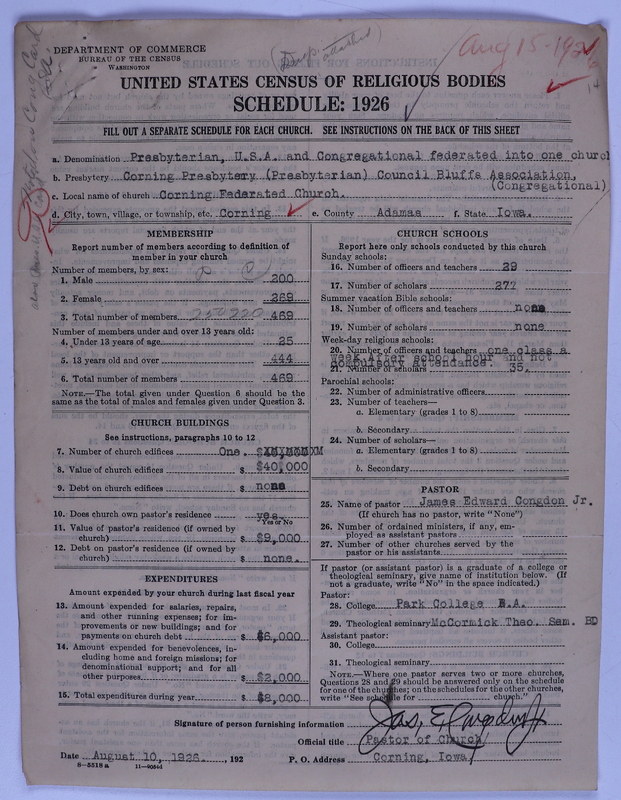 DEPARTMENT OF COMMERCE
BUREAU OF THE CENSUS
WASHINGTON
Aug 15-1926
UNITED STATES CENSUS OF RELIGIOUS BODIES
SCHEDULE: 1926
FILL OUT A SEPARATE SCHEDULE FOR EACH CHURCH. SEE INSTRUCTIONS ON THE BACK OF THIS SHEET
a. Denomination Presbyterian, U.S.A. and Congregational federated into one church
b. Presbytery Corning Presbytery (Presbyterian) Council Bluffs Association,
(Congregational)
c. Local name of church Corning Federated Church.
d. City, town, village, or township, etc. Corning e. County Adamss f. State Iowa.
MEMBERSHIP
Report number of members according to definition of
member in your church
Number of members, by sex:
1. Male 200
2. Female 269
3. Total number of members 250 220 469
Number of members under and over 13 years old:
4. Under 13 years of age 25
5. 13 years old and over 444
6. Total number of members 469
NOTE.—The total given under Question 6 should be
the same as the total of males and females given under Question 3.
CHURCH BUILDINGS
See instructions, paragraphs 10 to 12
7. Number of church edifices One.
8. Value of church edifices $ $40,000
9. Debt on church edifices $ none
10. Does church own pastor's residence yes.
Yes or No
11. Value of pastor's residence (if owned by
church) $ $9,000
12. Debt on pastor's residence (if owned by
church) $ none.
EXPENDITURES
Amount expended by your church during last fiscal year
13. Amount expended for salaries, repairs,
and other running expenses; for im-
provements or new buildings; and for
payments on church debt $ $6,000
14. Amount expended for benevolences, in-
cluding home and foreign missions; for
denominational support; and for all
other purposes $ $2,000
15. Total expenditures during year $ $8,000
CHURCH SCHOOLS
Report here only schools conducted by this church
Sunday schools:
16. Number of officers and teachers 29
17. Number of scholars 277
Summer vacation Bible schools:
18. Number of officers and teachers none
19. Number of scholars none
Week-day religious schools:
20. Number of officers and teachers one class a
week after school hour and not
compulsory attendance.
21. Number of scholars 35,
Parochial schools:
22. Number of administrative officers
23. Number of teachers—
a. Elementary (grades 1 to 8)
b. Secondary
24. Number of scholars—
a. Elementary (grades 1 to 8)
b. Secondary
PASTOR
25. Name of pastor James Edward Congdon Jr.
(If church has no pastor, write "None")
26. Number of ordained ministers, if any, em-
ployed as assistant pastors
27. Number of other churches served by the
pastor or his assistants
If pastor (or assistant pastor) is a graduate of a college or
theological seminary, give name of institution below. (If
not a graduate, write "No" in the space indicated.)
Pastor:
28. College Park College B.A.
29. Theological seminary McCormick Theo. Sem. BD
Assistant pastor:
30. College
31. Theological seminary
NOTE.—Where one pastor serves two or more churches,
Questions 28 and 29 should be answered only on the schedule
for one of the churches; on the schedules for the other churches,
write "See schedule for church."
Signature of person furnishing information Jas. E. Congdon Jr
Official title Pastor of Church
Date August 10, 1926. , 192 P. O. Address Corning, Iowa
8—5518 a 11—9034d